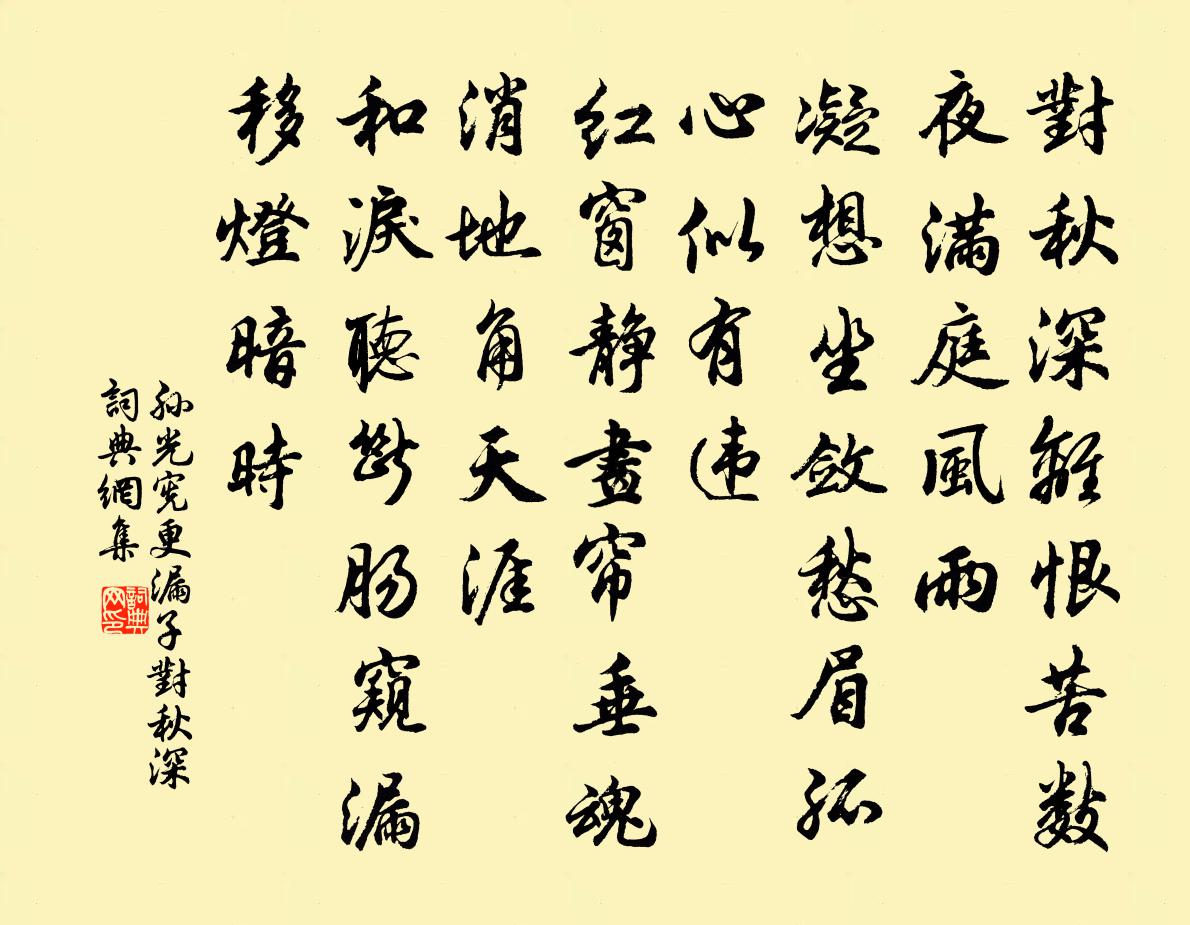 對秋深離恨苦數
夜滿庭風雨
凝想坐斂愁眉孤
心似有违
红窗静畫帘垂魂
消地角天涯
和淚聽斷肠窺漏
移燈暗時
孙光宪更漏子對秋深
詞典網集
詞典网印